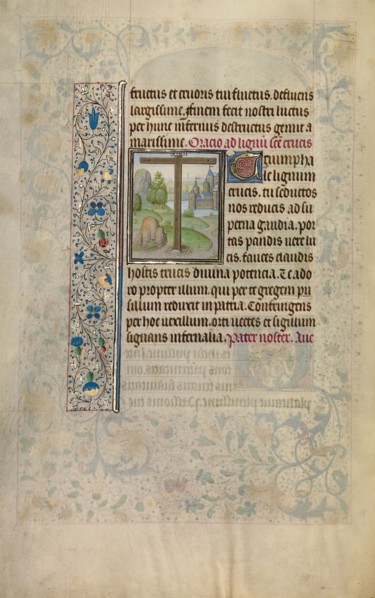 fructus et cruoris tui fluctus. defluens
largissime. finem fecit nostri luctus
per hunc infernus destructus gemit a
marissime. Oracio ad lignū scē crucis
Triumpha
le lignum
crucis. tu seductos
nos reducis. ad su
perna gaudia. por
tas pandis vere lu
cis. fauces claudis
hostis trucis diuina potencia. Te ado
ro propter illum. qui per te gregem pu
sillum reduxit in patria. Contringens
per hoc vexillum. orci vectes et sigillum
signans infernalia. Pater noster. Aue